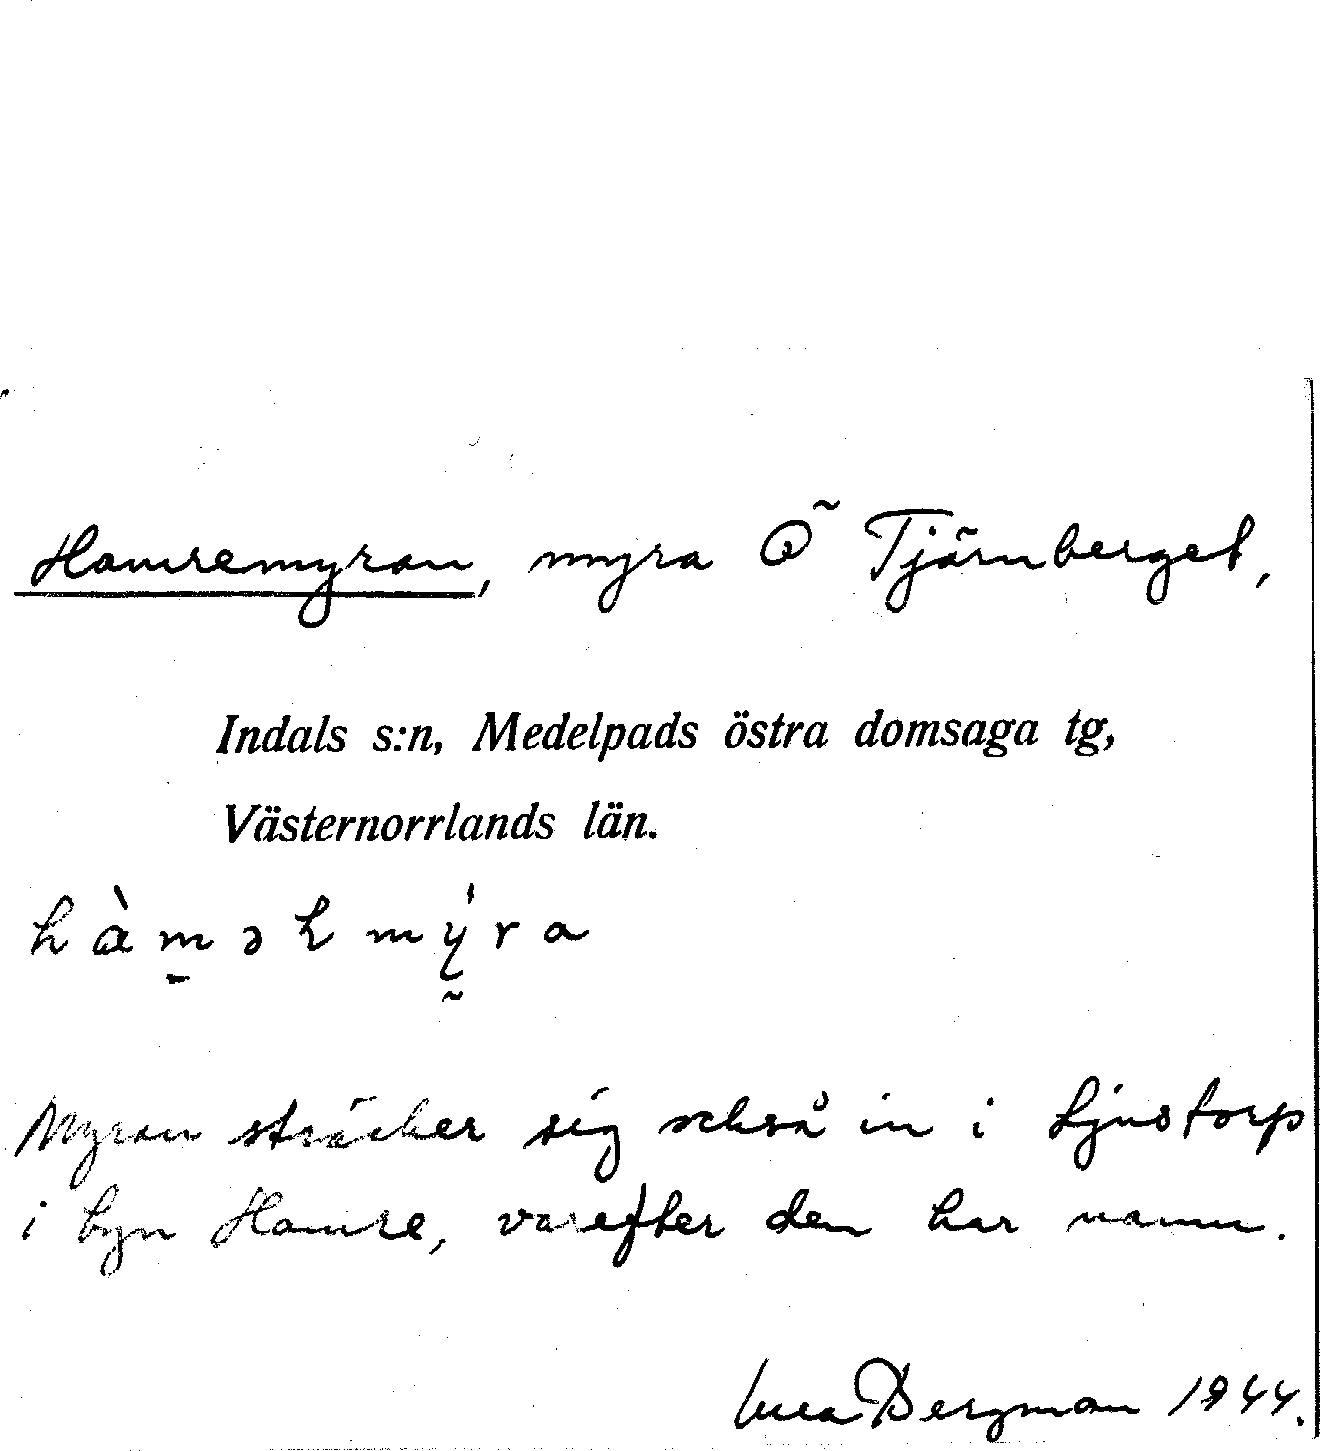 Hamremyran, myra Ö Tjärnberget,
Indals s:n, Medelpads östra domsaga tg,
Västernorrlands län.
Myran sträcker sig också in i Ljustorp
i byn Hamre, varefter den har namn.
Bergman 1944.